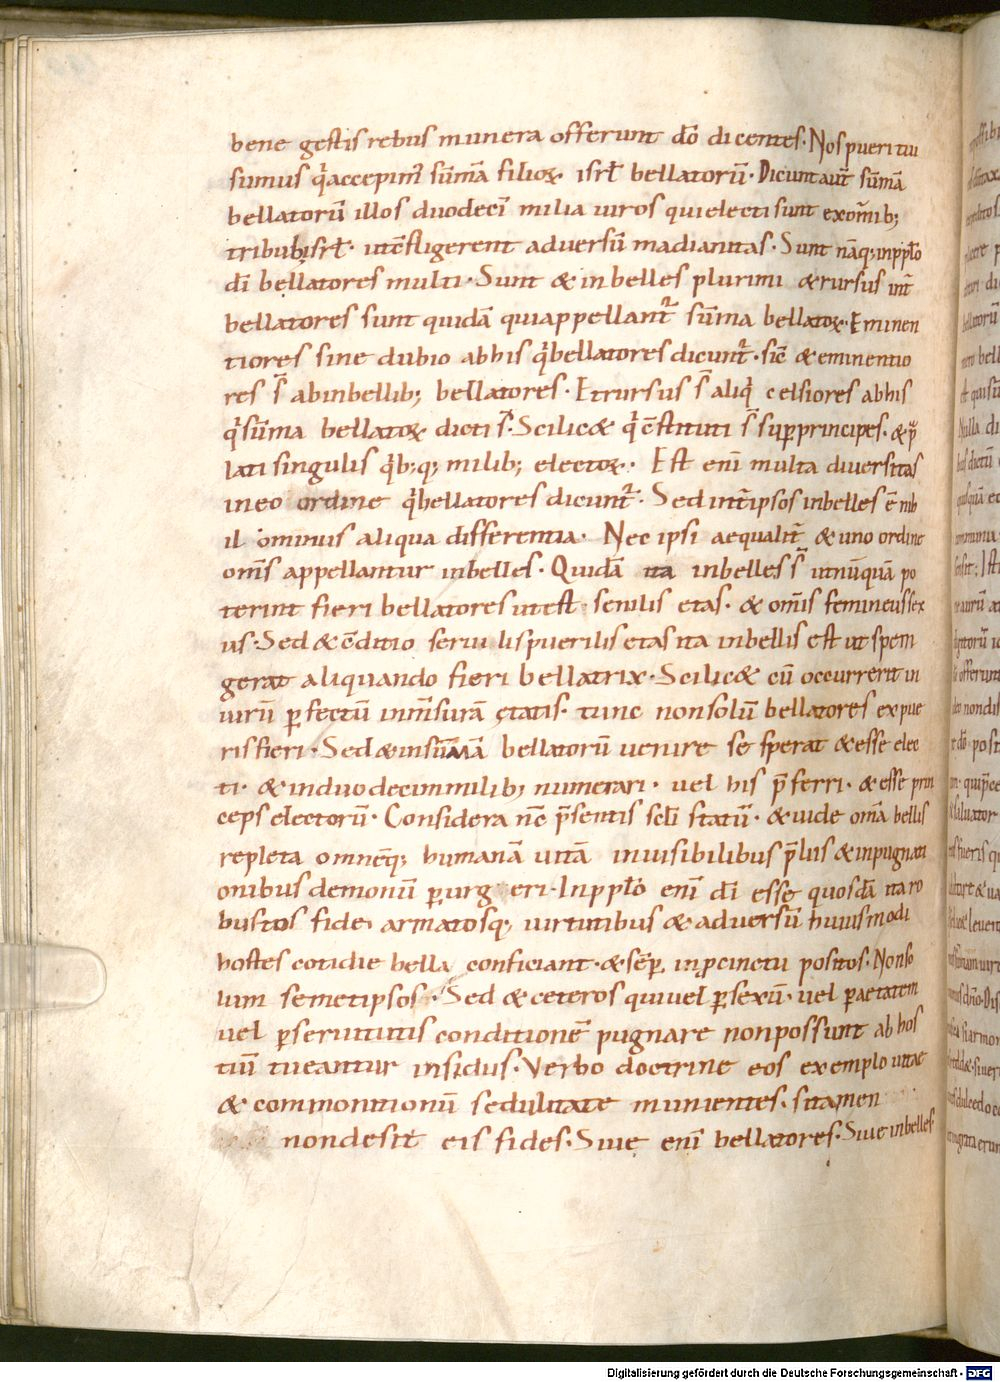 bene gestis rebus munera offerunt dō dicentes. Nos pueri tui
sumus q̄ accepim̄ sūmā filioꝝ isrł bellatorū. Dicunt aut̄ sūmā
bellatorū illos duodecī milia uiros qui electi sunt ex om̄ib;
tribub; isrł. ut c̄fligerent adversū madianitas. Sunt nāq; in ppło
dī bellatores multi. Sunt & inbelles plurimi & rursus int̄
bellatores sunt quidā qui appellant̄ sūma bellatoꝝ. Eminen
tiores sine dubio ab his q̄ bellatores dicunt̄. sic̄ & eminentio
res s̄ ab inbellib; bellatores. Et rursus s̄ aliq̄ celsiores ab his
q̄ sūma bellatoꝝ dicti s̄. Scilic& q̄ c̄stituti s̄ sup principes. & p̄
lati singulis q̄b;q; milib; electoꝝ. Est enī multa diversitas
in eo ordine q̄ bellatores dicunt̄. Sed int̄ ipsos inbelles ē nih
il ominus aliqua differentia. Nec ipsi aequalit̄ & uno ordine
om̄s appellantur inbelles. Quidā ita inbelles s̄ ut nūquā po
terint fieri bellatores ut est senilis etas. & om̄is femineus sex
us. Sed & c̄ditio seruilis puerilis etas ita inbellis est ut spem
gerat aliquando fieri bellatrix. Scilic& cū occurrerit in
uirū pfectū in m̄surā ętatis. tunc non solū bellatores ex pue
ris fieri. Sed & in sūmā bellatorū uenire se sperat & esse elec
ti. & in duodecim milib; numerari. uel his p̄ferri. & esse prin
ceps electorū. Considera nc̄ p̄sentis sclī statū. & uide om̄a bellis
repleta omnēq; humanā uitā inuisibilibus p̄liis & inpugnati
onibus demonū purgeri. In ppło enī dī esse quosdā ita ro
bustos fide armatosq; uirtutibus & adversū huiusmodi
hostes cotidie bella conficiant. & sēp in pcinctu positos. Non so
lum semetipsos. Sed & ceteros qui uel p sexū. uel p aetatem
uel p seruitutis conditionē pugnare non possunt ab hos
tiū tueantur insidiis. Verbo doctrine eos exemplo uitae
& commonitionū sedulitate munientes. si tamen
non desit eis fides. Siue enī bellatores. Siue inbelles
Digitalisierung gefördert durch die Deutsche Forschungsgemeinschaft - DFG